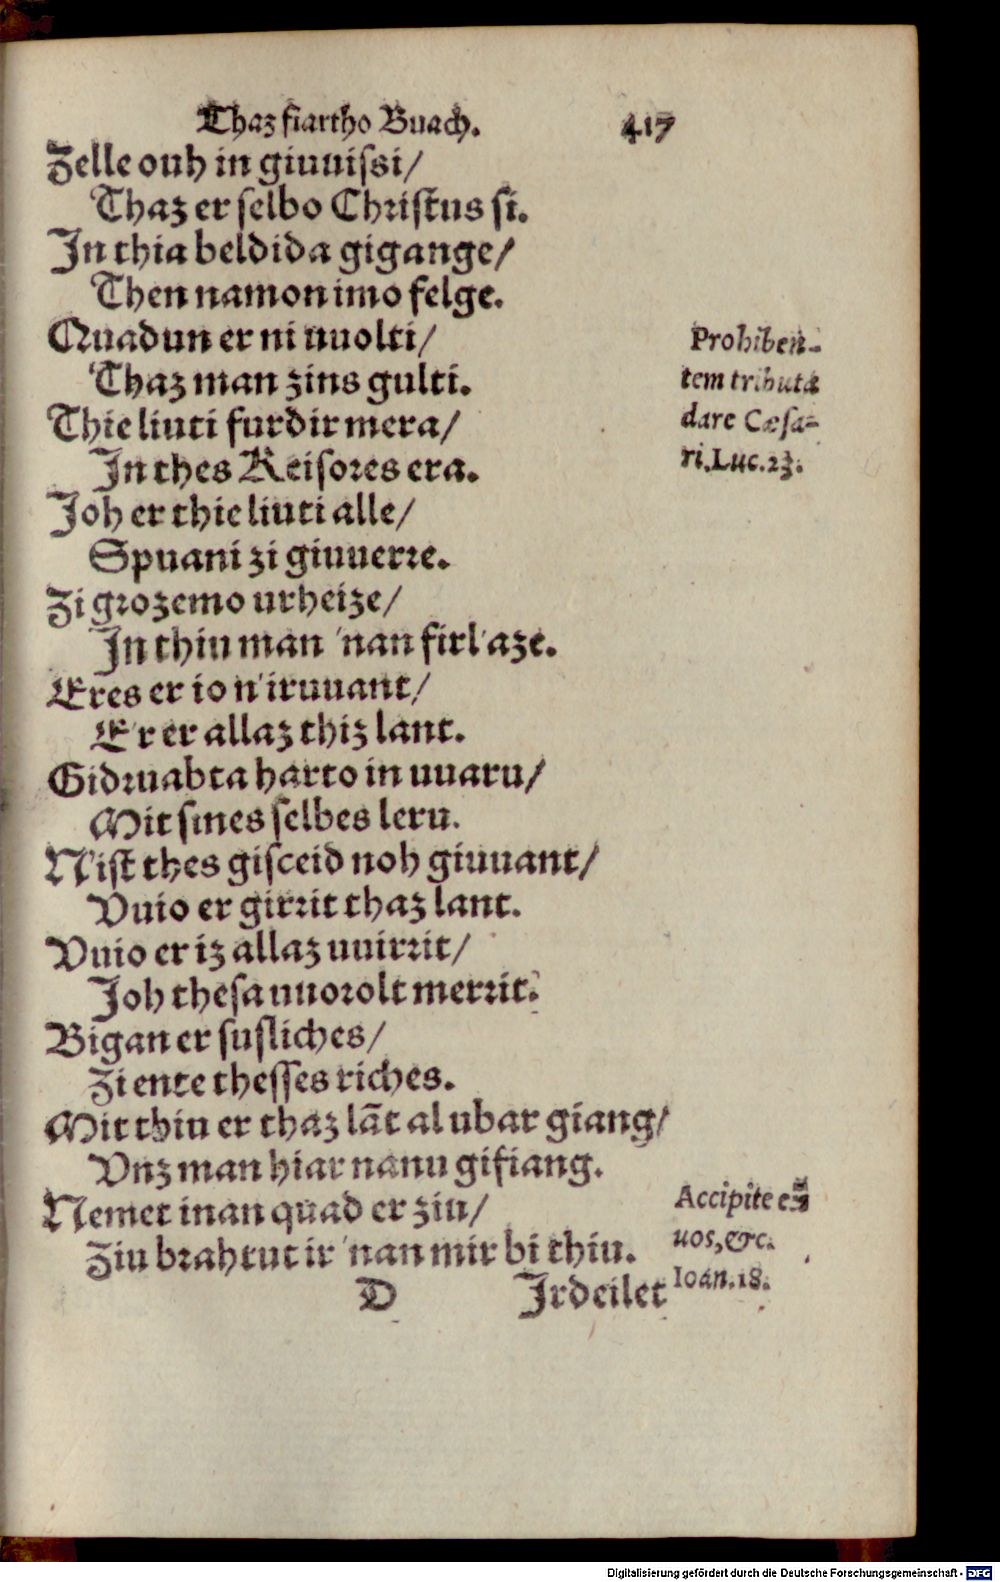 Thaz fiartho Buach. 417
Zelle ouh in giuuissi/
Thaz er selbo Christus si.
In thia beldida gigange/
Then namon imo felge.
Quadun er ni uuolti/
Thaz man zins gulti.
Thie liuti furdir mera/
In thes Keisores era.
Joh er thie liuti alle/
Spuani zi giuuerre.
Zi grozemo urheize/
In thiu man 'nan firl'aze.
Eres er io n'iruuant/
E'r er allaz thiz lant.
Gidruabta harto in uuaru/
Mit sines selbes leru.
N'ist thes gisceid noh giuuant/
Vuio er girrit thaz lant.
Vuio er iz allaz uuirrit/
Joh thesa uuorolt merrit.
Bigan er susliches/
Zi ente thesses riches.
Mit thiu er thaz lāt al ubar giang/
Vnz man hiar nanu gifiang.
Nemet inan quad er ziu/
Ziu brahtut ir 'nan mir bi thiu.
D Irdeilet
Prohiben-
tem tributa
dare Cæsa-
ri. Luc. 23.
Accipite eū
uos, &c.
Ioan. 18.
Digitalisierung gefördert durch die Deutsche Forschungsgemeinschaft - DFG